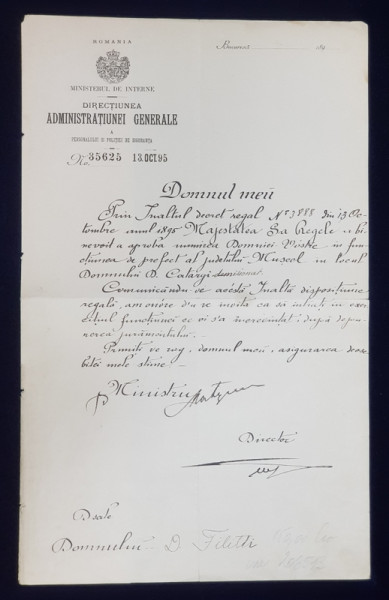 ROMANIA
MINISTERUL DE INTERNE
DIRECȚIUNEA
ADMINISTRAȚIUNEI GENERALE
A
PERSONALULUI ȘI POLIȚIEI DE SIGURANȚĂ
No. 35625 13.OCT.95
Bucuresci 189
Domnul meu
Prin Inaltul decret regal No 3888 din 13 Oc-
tombre anul 1895 Majestatea Sa Regele a bi-
nevoit a aproba numirea Domniei Vóstre in func-
țiunea de prefect al judetului Muscel in locul
Domnului D. Catargi demisionat.
Comunicându ve acéstă Inaltă disposițiune
regală, am onóre a ve invita ca să intrați in exer-
cițiul funcțiunei ce vi s'a incredințat, după depu-
nerea jurământului.
Primiți ve rog, domnul meu, asigurarea deose-
bitei mele stime.
p Ministru
Director
D-sale
Domnului D. Filitti